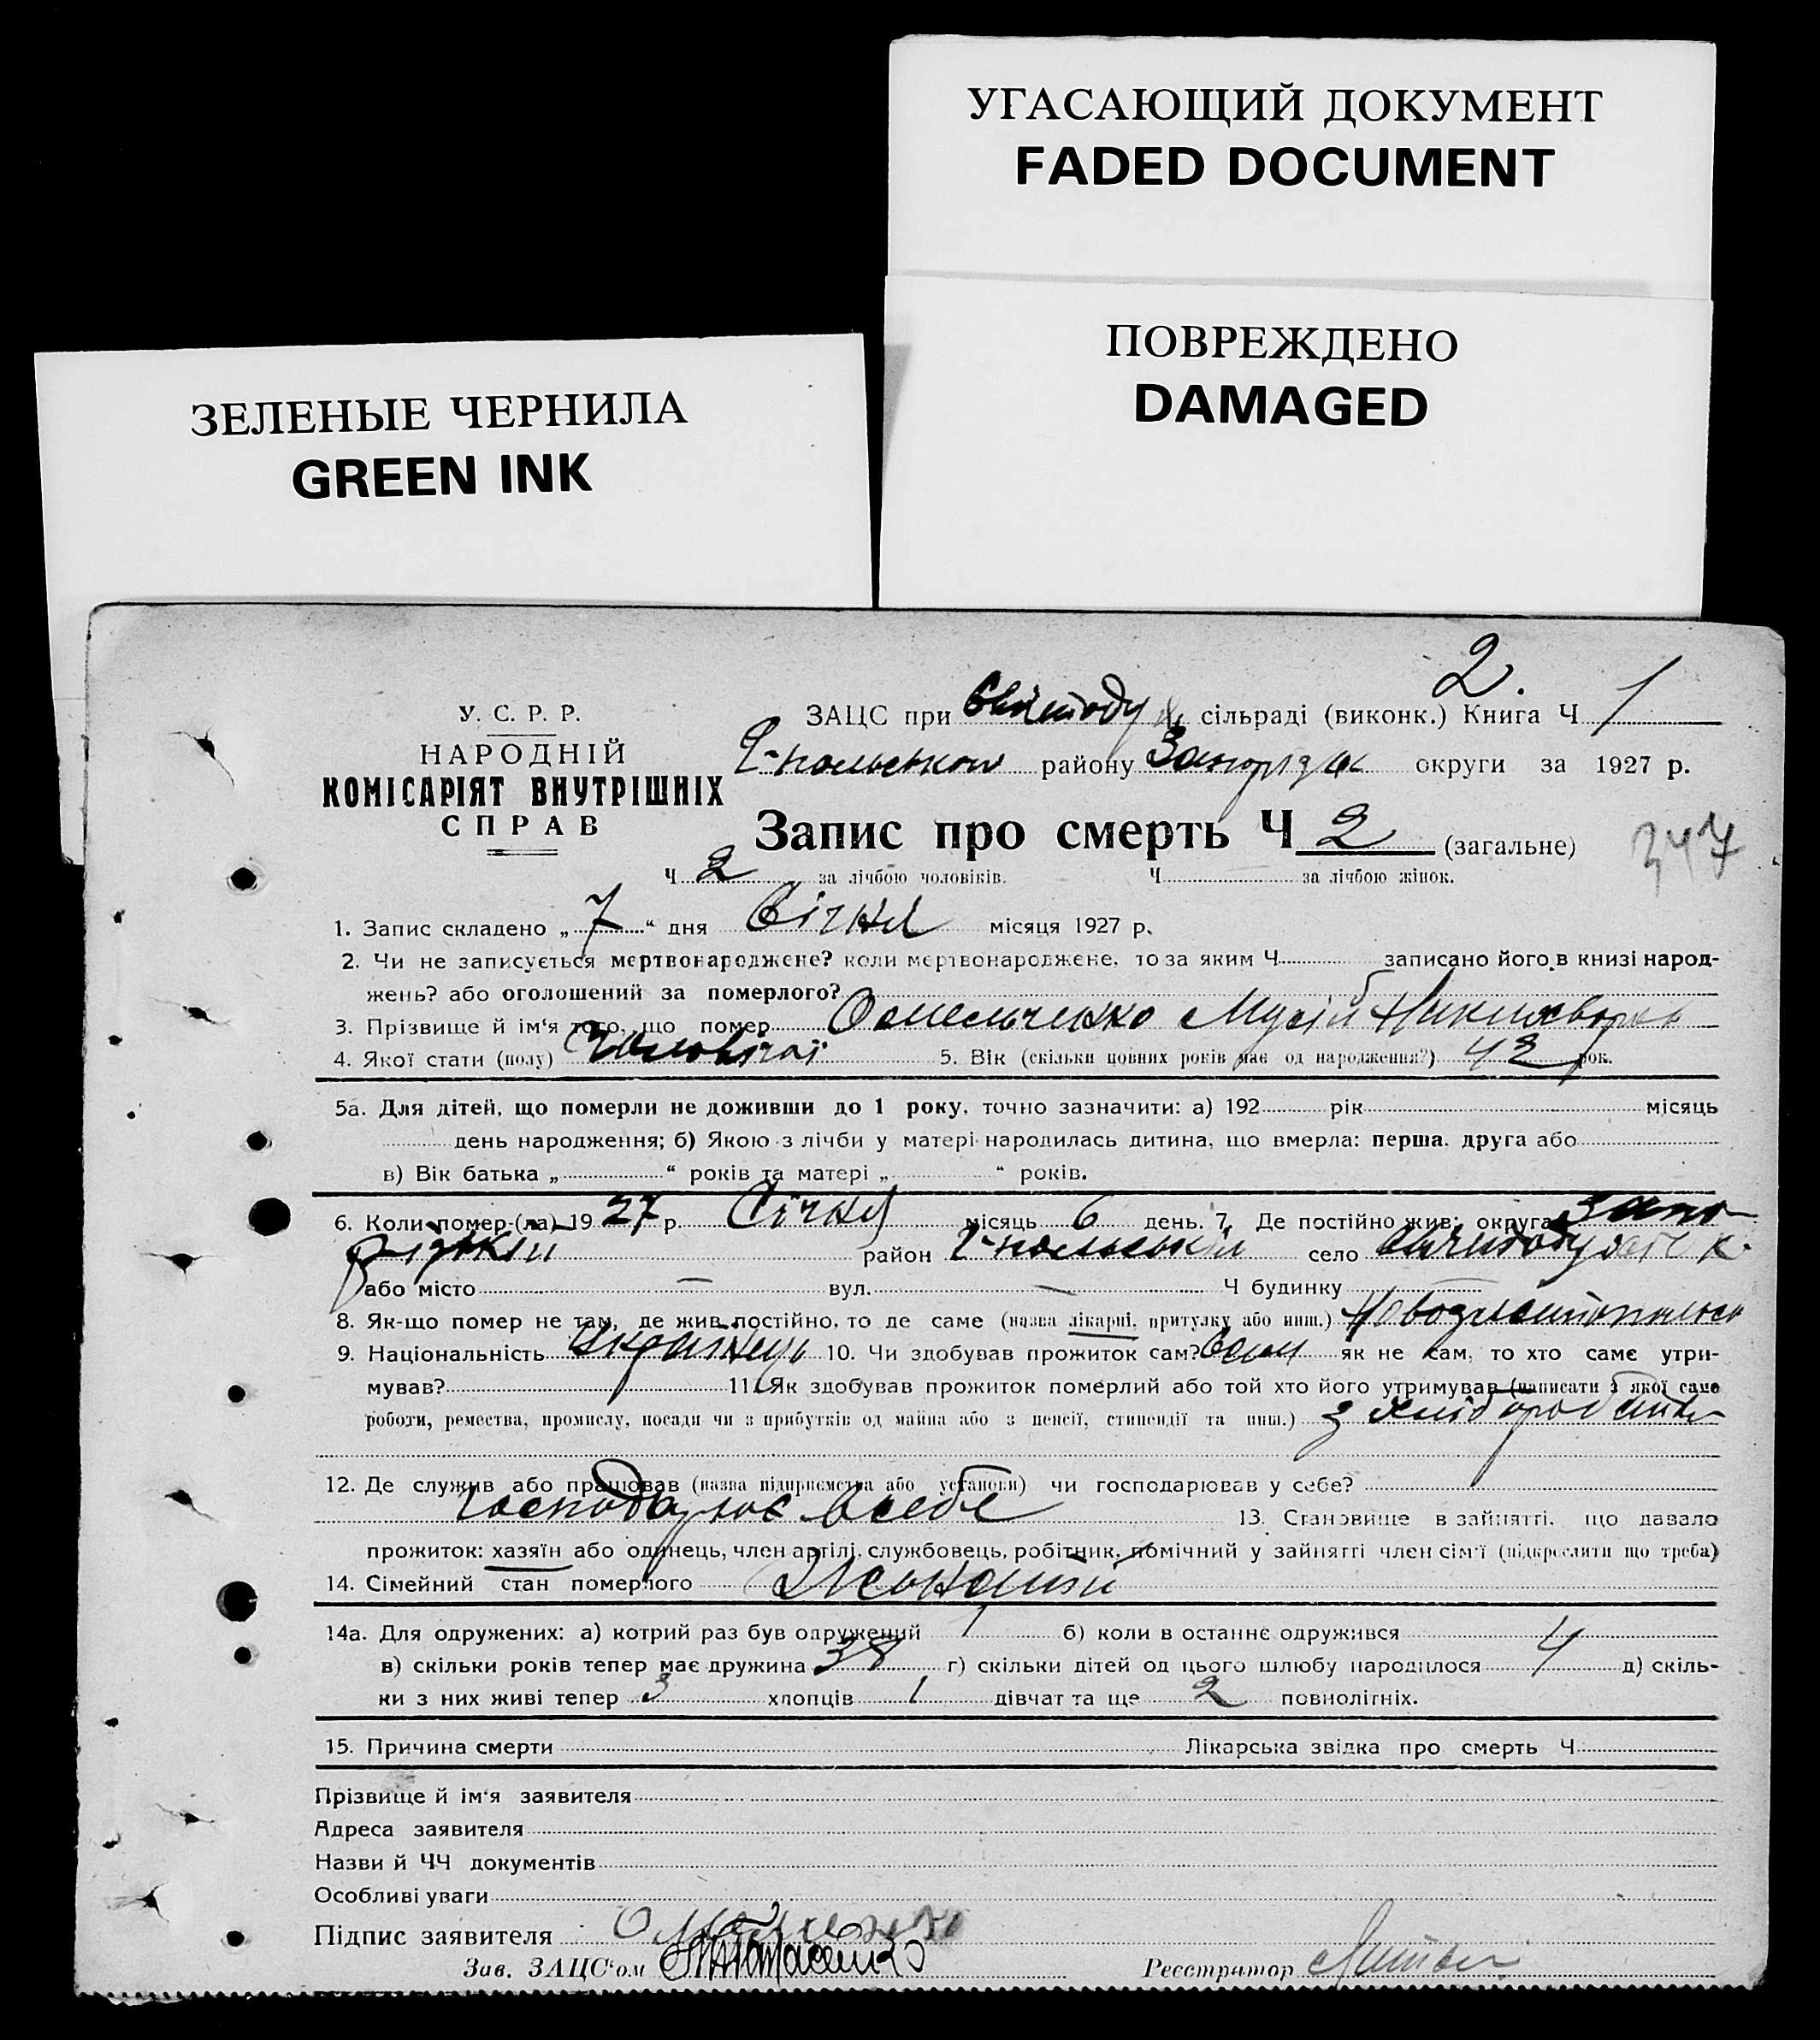 УГАСАЮЩИЙ ДОКУМЕНТ
FADED DOCUMENT
ПОВРЕЖДЕНО
DAMAGED
ЗЕЛЕНЫЕ ЧЕРНИЛА
GREEN INK
2.
У. С. Р. Р.
НАРОДНІЙ
КОМІСАРІЯТ ВНУТРІШНІХ
СПРАВ
ЗАЦС при сільраді (виконк.) Книга Ч 1
району округи за 1927 р.
Запис про смерть Ч 2 (загальне)
347
Ч 2 за лічбою чоловіків. Ч за лічбою жінок.
1. Запис складено „ 7 “ дня Січня місяця 1927 р.
2. Чи не записується мертвонароджене? коли мертвонароджене, то за яким Ч записано його в книзі народ-
жень? або оголошений за померлого?
3. Прізвище й ім'я того, що помер Омельченко Мусій
4. Якої стати (полу) 5. Вік (скільки повних років має од народження?) 42 рок.
5а. Для дітей, що померли не доживши до 1 року, точно зазначити: а) 192 рік місяць
день народження; б) Якою з лічби у матері народилась дитина, що вмерла: перша, друга або
в) Вік батька „ “ років та матері „ “ років.
6. Коли помер (ла) 19 27 р. Січня місяць 6 день. 7. Де постійно жив: округа Запо-
різький район село
або місто — вул. — Ч будинку —
8. Як-що помер не там, де жив постійно, то де саме (назва лікарні, притулку або инш.)
9. Національність Українець 10. Чи здобував прожиток сам? Сам як не сам, то хто саме утри-
мував? 11. Як здобував прожиток померлий або той хто його утримував (написати з якої саме
роботи, ремества, промислу, посади чи з прибутків од майна або з пенсії, стипендії та инш.) з
12. Де служив або працював (назва підприємства або установи) чи господарював у себе?
господарює в себе 13. Становище в зайнятті, що давало
прожиток: хазяїн або одинець, член артілі, службовець, робітник, помічний у зайнятті член сім'ї (підкреслити що треба)
14. Сімейний стан померлого Жонатий
14а. Для одружених: а) котрий раз був одружений 1 б) коли в останнє одружився
в) скільки років тепер має дружина 38 г) скільки дітей од цього шлюбу народилося 4 д) скіль-
ки з них живі тепер 3 хлопців 1 дівчат та ще 2 повнолітніх.
15. Причина смерти Лікарська звідка про смерть Ч
Прізвище й ім'я заявителя
Адреса заявителя
Назви й ЧЧ документів
Особливі уваги
Підпис заявителя
Зав. ЗАЦС'ом
Реєстратор